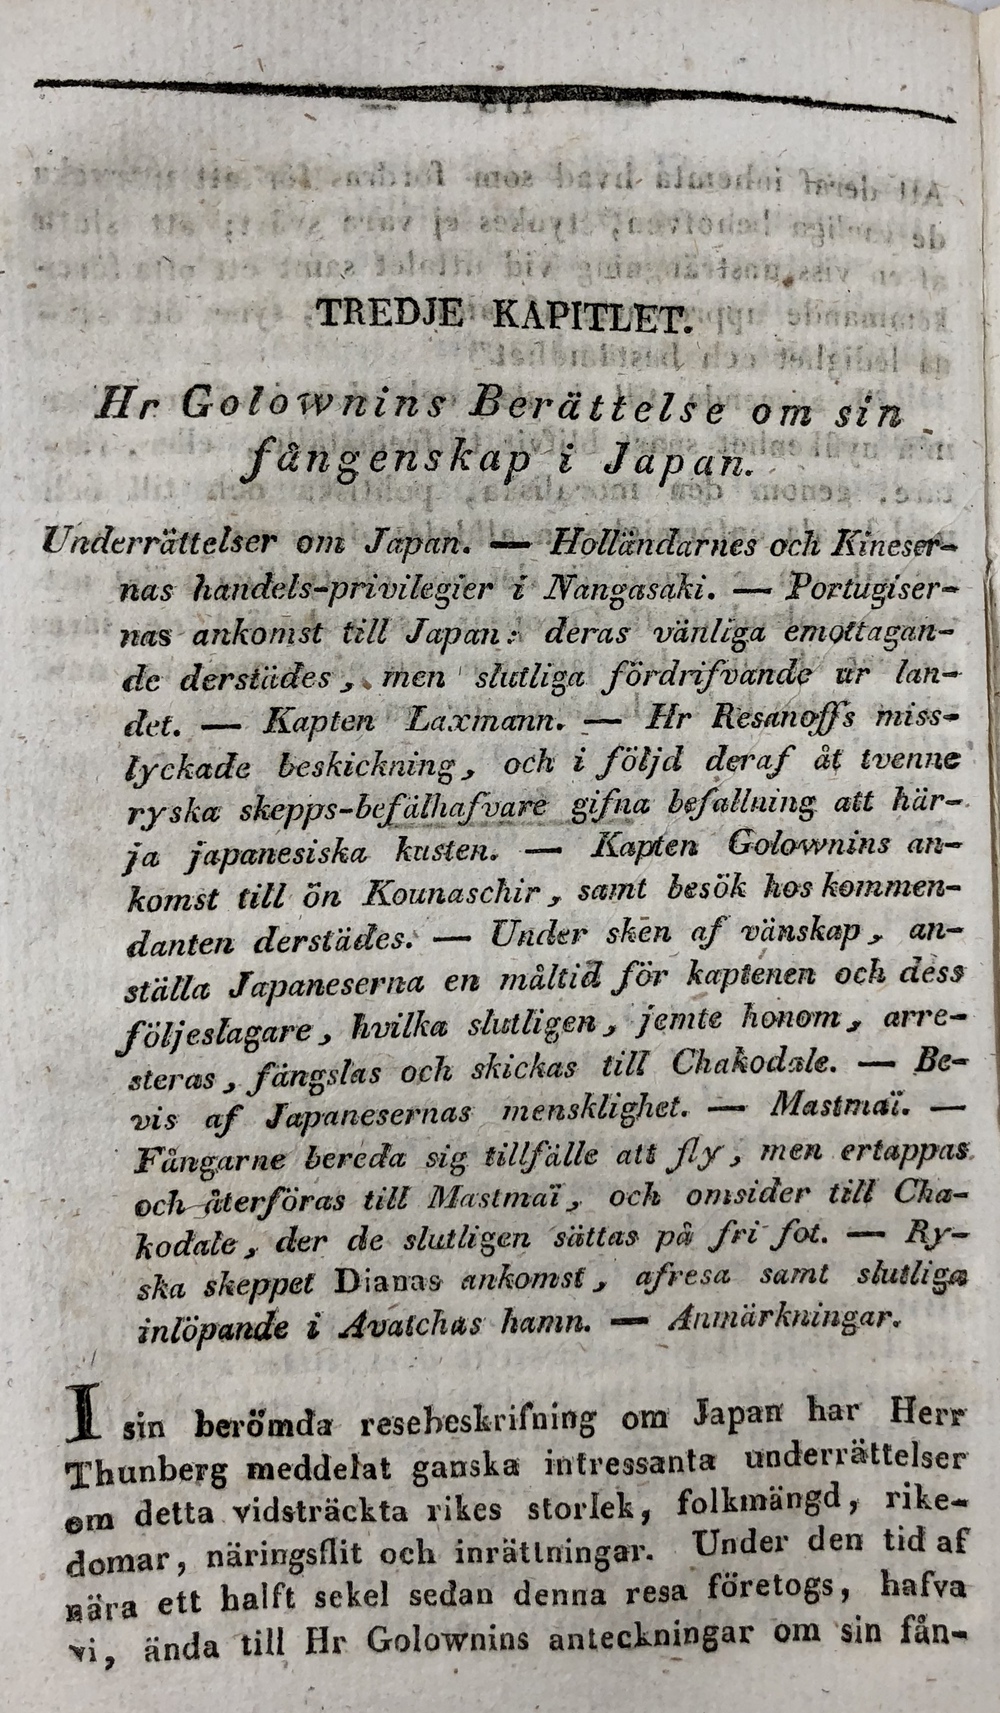 TREDJE KAPITLET.
Hr Golownins Berättelse om sin
fångenskap i Japan.
Underrättelser om Japan. — Holländarnes och Kineser-
nas handels-privilegier i Nangasaki. — Portugiser-
nas ankomst till Japan: deras vänliga emottagan-
de derstädes, men slutliga fördrifvande ur lan-
det. — Kapten Laxmann. — Hr Resanoffs miss-
lyckade beskickning, och i följd deraf åt tvenne
ryska skepps-befälhafvare gifna befallning att här-
ja japanesiska kusten. — Kapten Golownins an-
komst till ön Kounaschir, samt besök hos kommen-
danten derstädes. — Under sken af vänskap, an-
ställa Japaneserna en måltid för kaptenen och dess
följeslagare, hvilka slutligen, jemte honom, arre-
steras, fängslas och skickas till Chakodale. — Be-
vis af Japanesernas mensklighet. — Mastmaï. —
Fångarne bereda sig tillfälle att fly, men ertappas
och återföras till Mastmaï, och omsider till Cha-
kodale, der de slutligen sättas på fri fot. — Ry-
ska skeppet Dianas ankomst, afresa samt slutliga
inlöpande i Avatchas hamn. — Anmärkningar.
I sin berömda resebeskrifning om Japan har Herr
Thunberg meddelat ganska intressanta underrättelser
om detta vidsträckta rikes storlek, folkmängd, rike-
domar, näringsflit och inrättningar. Under den tid af
nära ett halft sekel sedan denna resa företogs, hafva
vi, ända till Hr Golownins anteckningar om sin fån-